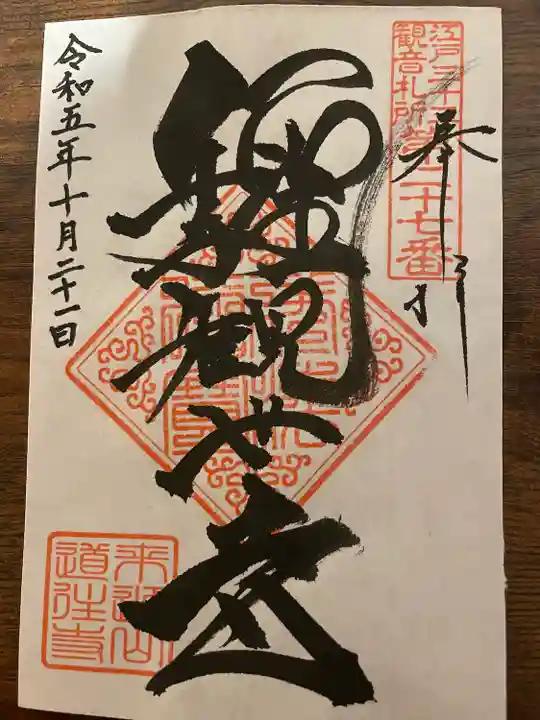 江戸三十三
観音札所
第二十七番
奉拝
聖観世音
令和五年十月二十一日
来迎山
道往寺